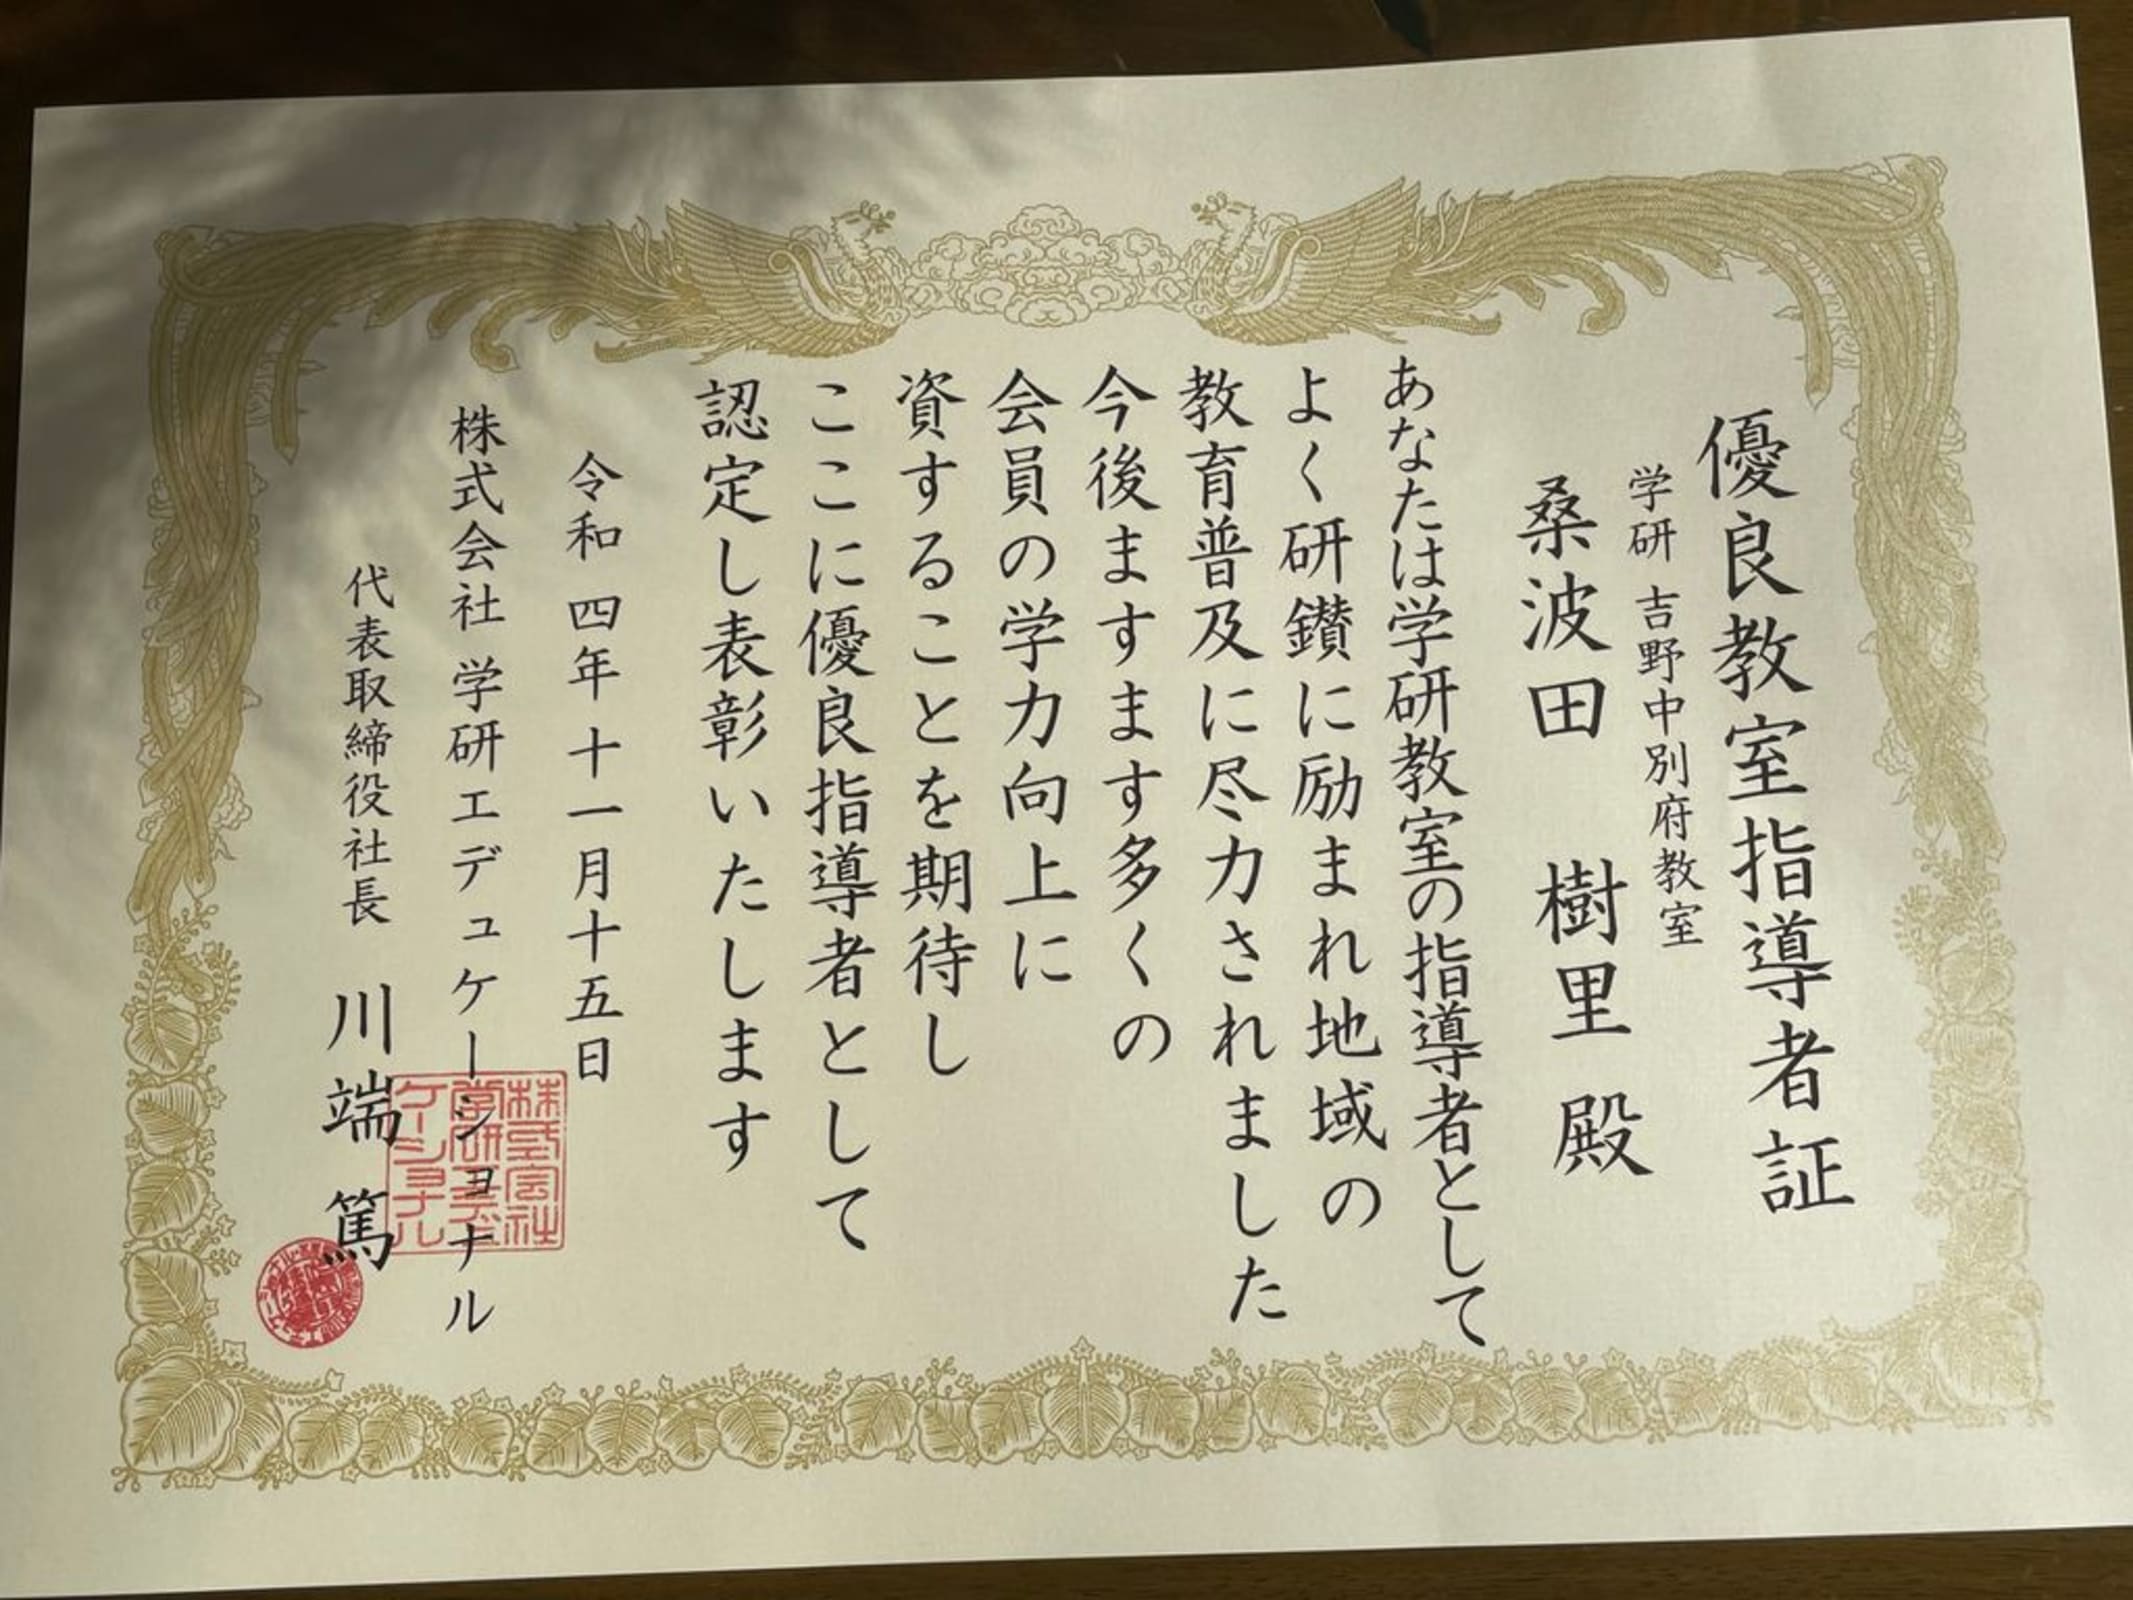 優良教室指導者証
学研 吉野中別府教室
桑波田 樹里 殿
あなたは学研教室の指導者として
よく研鑽に励まれ地域の
教育普及に尽力されました
今後ますます多くの
会員の学力向上に
資することを期待し
ここに優良指導者として
認定し表彰いたします
令和四年十一月十五日
株式会社 学研エデュケーショナル
代表取締役社長 川端 篤
株式会社
学研エデュ
ケーショナル